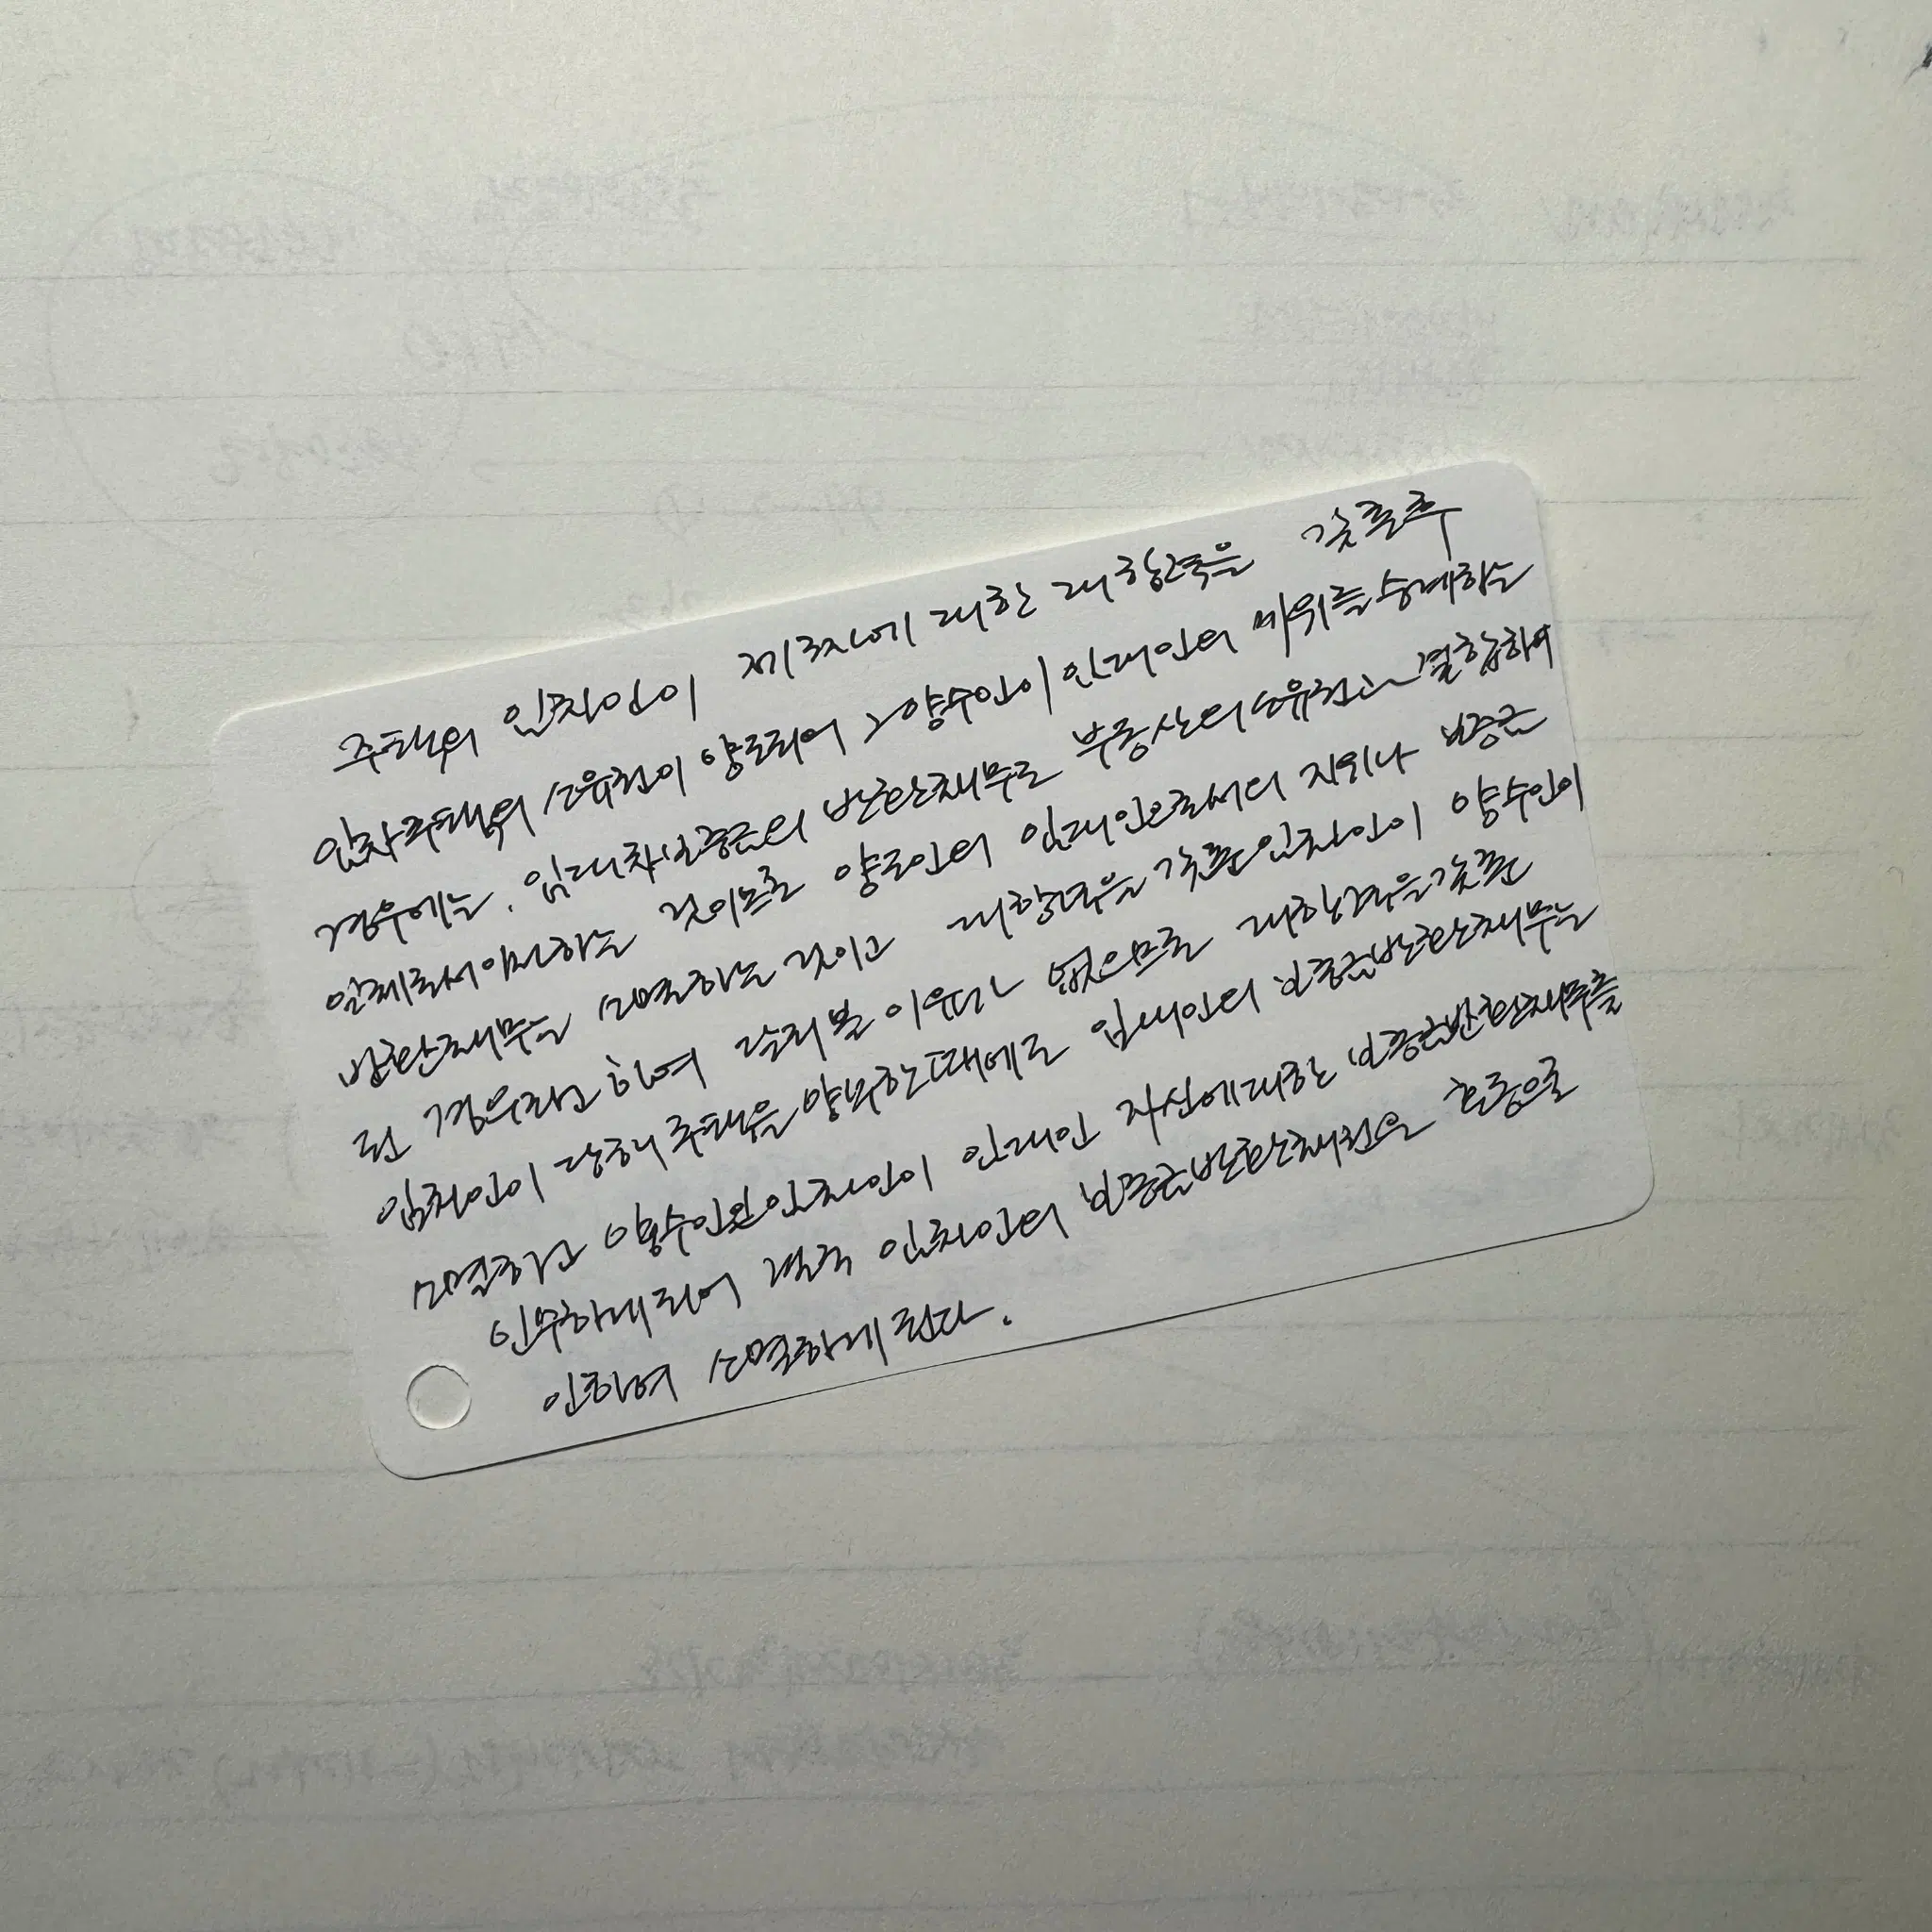 주택의 임차인이 제3자에 대한 대항력을 갖춘 후
임차주택의 소유권이 양도되어 그 양수인이 임대인의 지위를 승계하는
경우에는, 임대차보증금의 반환채무도 부동산의 소유권과 결합하여
일체로서 이전하는 것이므로 양도인의 임대인으로서의 지위나 보증금
반환채무는 소멸하는 것이고 대항력을 갖춘 임차인이 양수인이
된 경우라고 하여 달리 볼 이유가 없으므로 대항력을 갖춘
임차인이 당해 주택을 양수한 때에도 임대인의 보증금반환채무는
소멸하고 양수인인 임차인이 임대인 자신에 대한 보증금반환채무를
인수하게 되어 결국 임차인의 보증금반환채권은 혼동으로
인하여 소멸하게 된다.